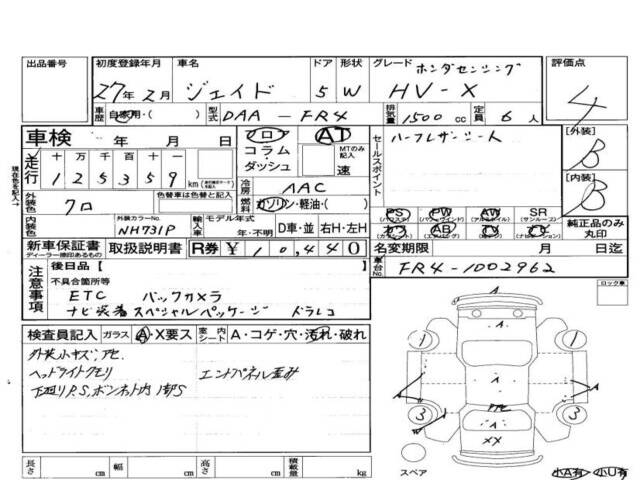 出品番号
初度登録年月
27年2月
車名
ジェイド
ドア
5
形状
W
グレード
ホンダセンシング
HV-X
評価点
4
車歴
自家用・( )
型式
DAA-FR4
排気量
1500cc
定員
6人
車検
年 月 日
フロア
コラム
ダッシュ
AT
MTのみ記入
速
セールスポイント
ハーフレザーシート
[外装]
B
[内装]
B
走行
十万千百十一
125359
km
冷房
AAC
燃料
ガソリン・軽油・( )
外装色
クロ
色替車は色替と記入
内装色
外装カラーNo.
NH731P
輸入車
モデル年式
年・不明
D車・並
右H・左H
PS
(パワステ)
PW
(パワーウィンド)
AW
(アルミホイル)
SR
(サンルーフ)
AB
TV
純正品のみ丸印
新車保証書
ディーラー捺印あるもの
取扱説明書
R券
¥10,440
名変期限
月 日迄
車台No.
FR4-1002962
注意事項
後日品[ ]
不具合箇所等
ETC バックカメラ
ナビ装着スペシャルパッケージ ドラレコ
ロック車
検査員記入
ガラス
A・X要ス
室内シート
A・コゲ・穴・汚れ・破れ
外装小キズ、
ヘッドライトクモリ
エンドパネル歪み
下廻りP.S,ボンネット内
1
1
A
3
3
A
XX
スペア
長さ
cm
幅
cm
高さ
cm
積載量
kg
小A有
小U有
現在色を記入